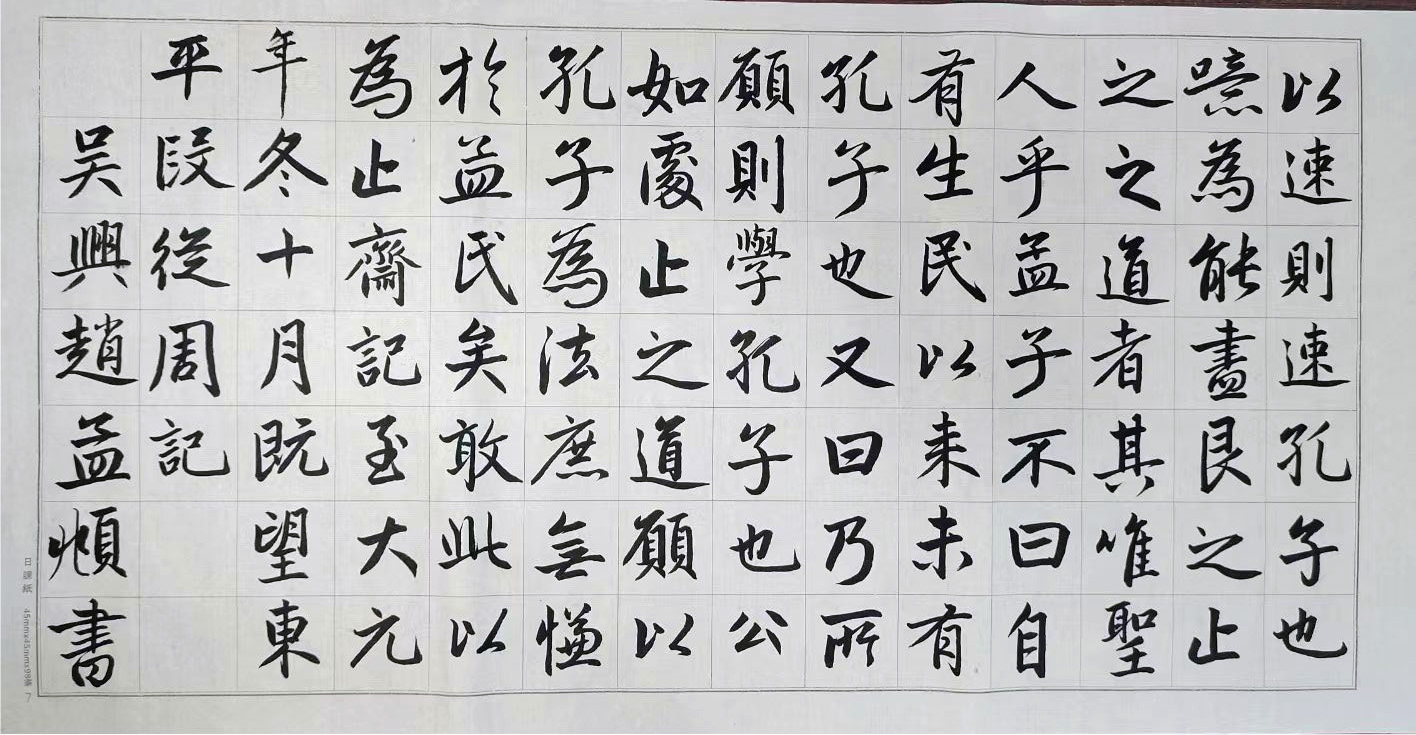 以速則速孔子也
噫為能盡艮之止
之之道者其唯聖
人乎孟子不曰自
有生民以来未有
孔子也又曰乃所
願則學孔子也公
如處止之道願以
孔子為法庶無慊
於益民矣敢此以
為止齋記至大元
年冬十月既望東
平段從周記
吴興趙孟頫書
日課紙 45mmx45mmx98格 7